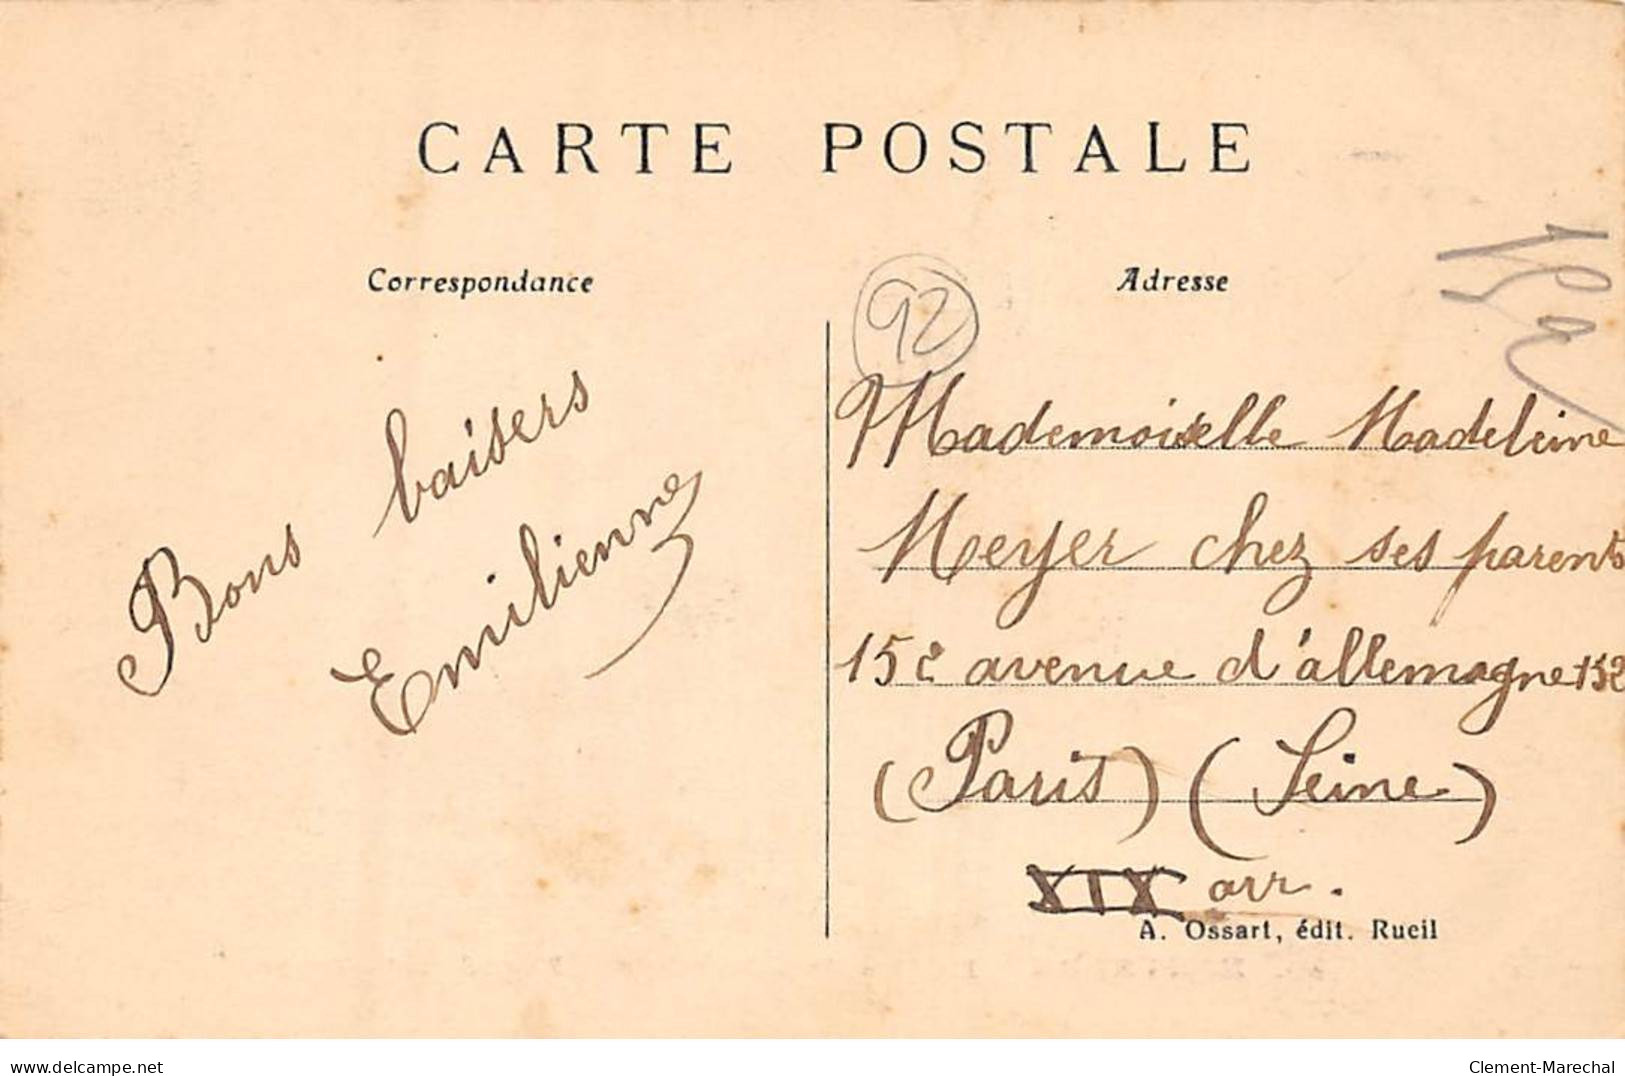 CARTE POSTALE
Correspondance
Adresse
92
Bons baisers
Emilienne
Mademoiselle Madeleine
Meyer chez ses parents
avenue d'allemagne 152
(Paris) (Seine)
XIX arr.
A. Ossart, édit. Rueil
delcampe.net
Clement-Marechal